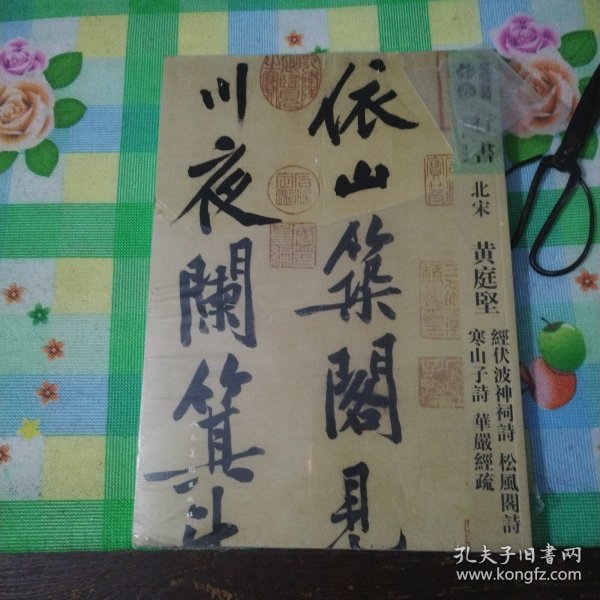 依山築閣見
川夜闌箕斗
行書
北宋 黄庭堅
經伏波神祠詩 松風閣詩
寒山子詩 華嚴經疏
人民美術出版社
孔夫子旧书网
www.kongfz.com